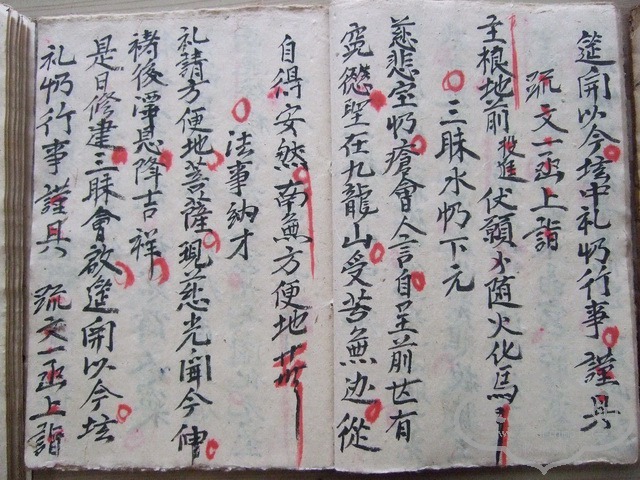 筵開以今坛中礼忏行事謹具
疏文一函上詣
至根地前投進伏願小随火化馬
三昧水忏下元
慈悲宝忏瘡會人言自呈前世有
冤愆堅在九龍山受苦無边從
自得安然南無方便地
法事納才
礼請方便地菩薩現慈光開今伸
褚後浄息降吉祥
是日修建三昧會啟筵開以今坛
礼忏行事謹具 疏文一函上詣